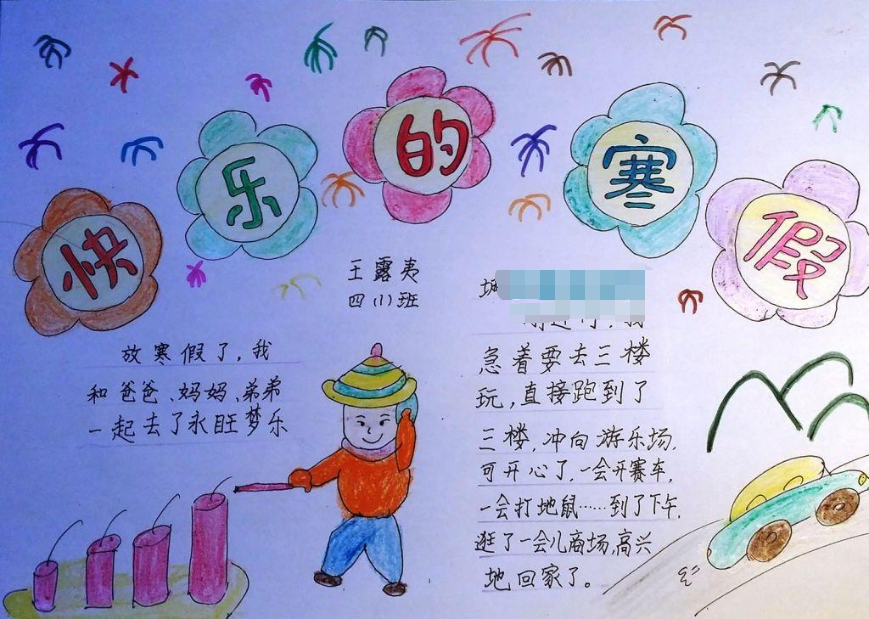 快乐的寒假
王露夷
四(1)班
放寒假了,我
和爸爸、妈妈、弟弟
一起去了永旺梦乐
城
我
急着要去三楼
玩,直接跑到了
三楼,冲向游乐场,
可开心了,一会开赛车,
一会打地鼠……到了下午,
逛了一会儿商场,高兴
地回家了。